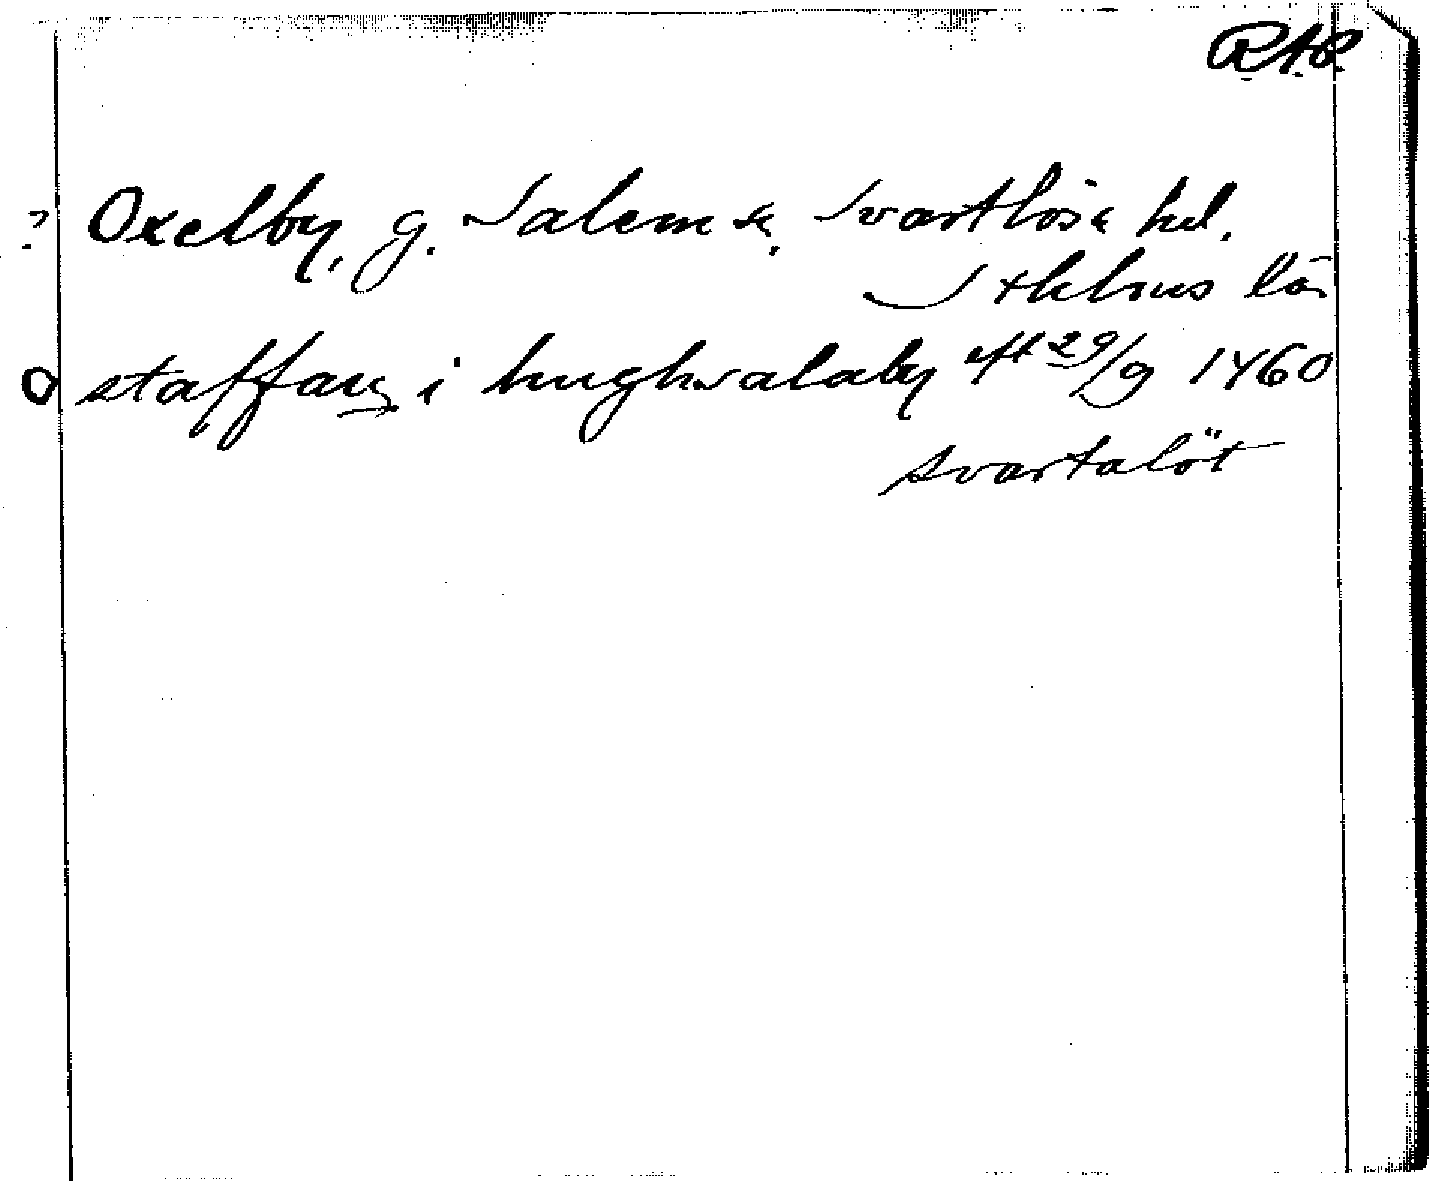 R.A.P.
? Oxelby, g. Salem sn. Svartlösa hd.
Sthlms län
O staffan i hughwalaby eft 29/9 1460
svartalöt